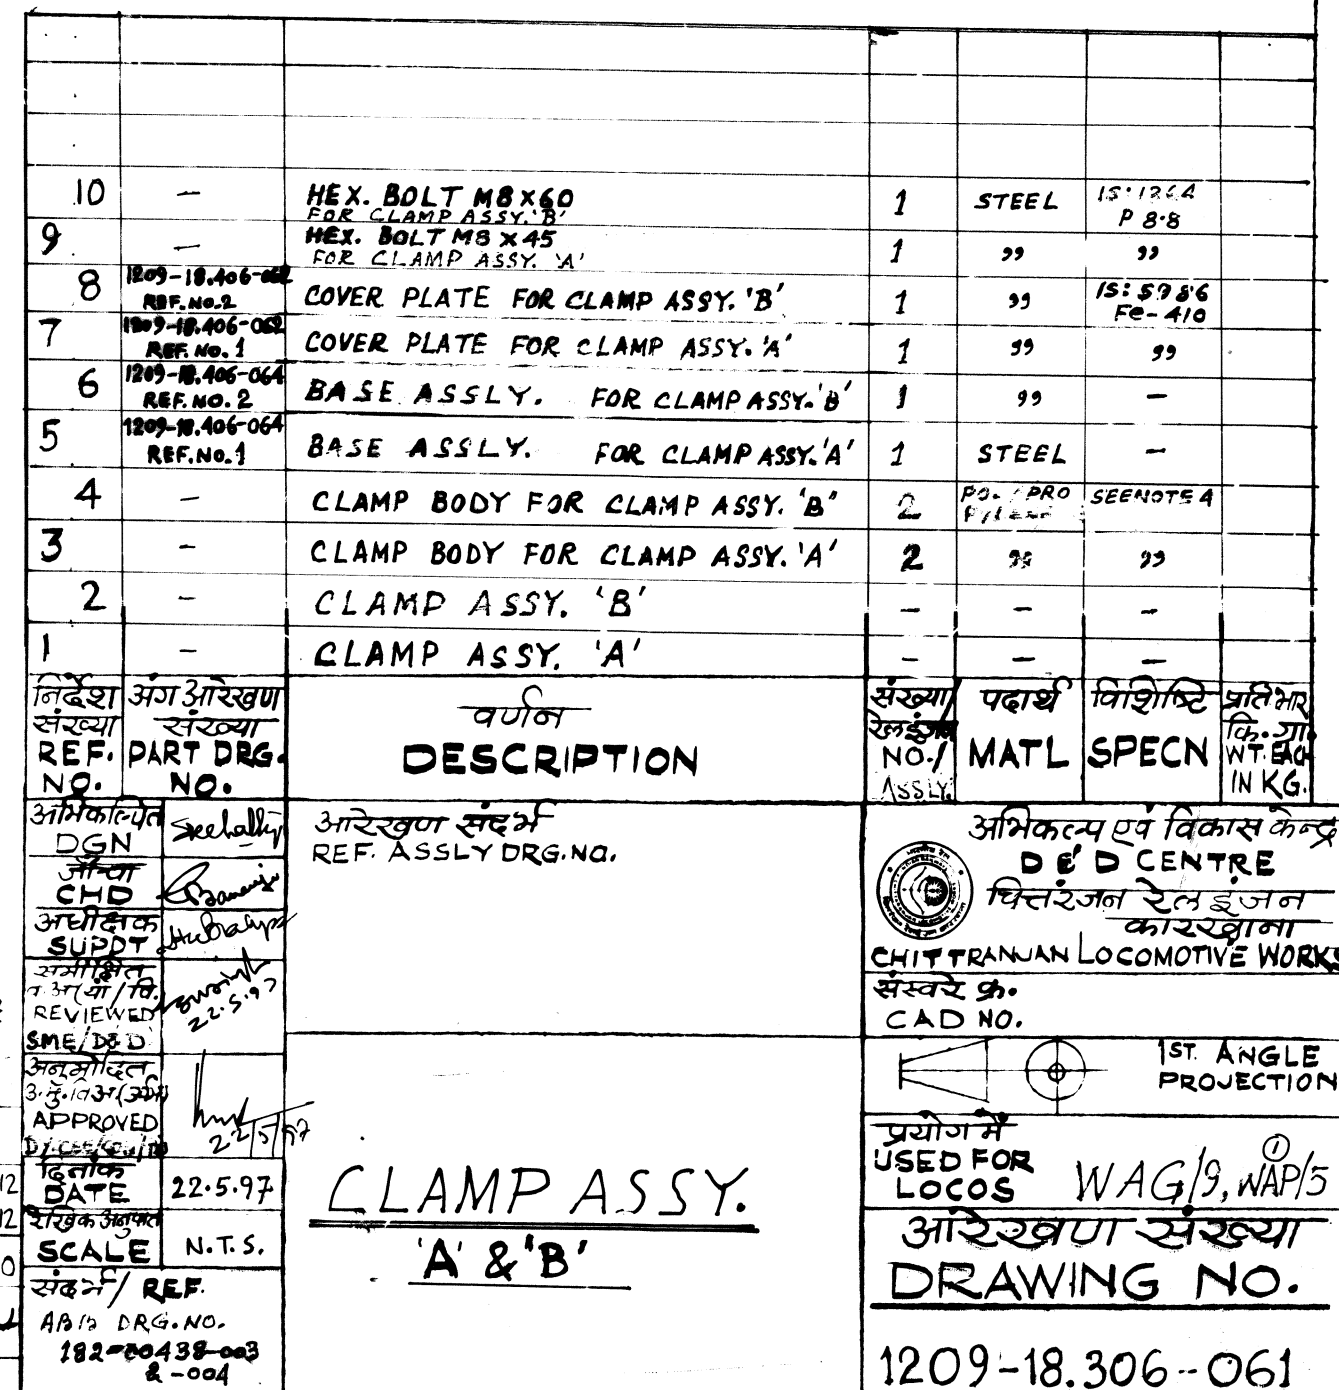 10 – HEX. BOLT M8×60 1 STEEL IS:1364
FOR CLAMP ASSY.'B' P 8.8
9 – HEX. BOLT M8×45 1 ,, ,,
FOR CLAMP ASSY. 'A'
8 1209-18.406-062 COVER PLATE FOR CLAMP ASSY. 'B' 1 ,, IS:5986
REF.NO.2 Fe-410
7 1209-18.406-062 COVER PLATE FOR CLAMP ASSY. 'A' 1 ,, ,,
REF. NO. 1
6 1209-18.406-064 BASE ASSLY. FOR CLAMP ASSY.'B' 1 ,, –
REF. NO. 2
5 1209-18.406-064 BASE ASSLY. FOR CLAMP ASSY.'A' 1 STEEL –
REF.NO.1
4 – CLAMP BODY FOR CLAMP ASSY. 'B' 2 SEE NOTE 4
3 – CLAMP BODY FOR CLAMP ASSY. 'A' 2 ,, ,,
2 – CLAMP ASSY. 'B' – – –
1 – CLAMP ASSY. 'A' – – –
निर्देश संख्या
REF. NO.
अंग आरेखण संख्या
PART DRG. NO.
वर्णन
DESCRIPTION
संख्या/
रेल इंजन
NO./
ASSLY.
पदार्थ
MATL
विशिष्टि
SPECN
प्रति भार
कि. ग्रा.
WT. EACH
IN KG.
अभिकल्पित
DGN
जाँचा
CHD
अधीक्षक
SUPDT
समीक्षित
REVIEWED
SME/D&D
22.5.97
अनुमोदित
APPROVED
22/5/97
दिनांक
DATE 22.5.97
रेखिक अनुपात
SCALE N.T.S.
संदर्भ/ REF.
DRG. NO.
182-00438-003
& -004
आरेखण संदर्भ
REF. ASSLY DRG. NO.
CLAMP ASSY.
'A' & 'B'
अभिकल्प एवं विकास केन्द्र
D & D CENTRE
चित्तरंजन रेल इंजन
कारखाना
CHITTRANJAN LOCOMOTIVE WORKS
CAD NO.
1ST. ANGLE
PROJECTION
प्रयोग में
USED FOR
LOCOS
WAG/9, WAP/5
1
आरेखण संख्या
DRAWING NO.
1209-18.306-061